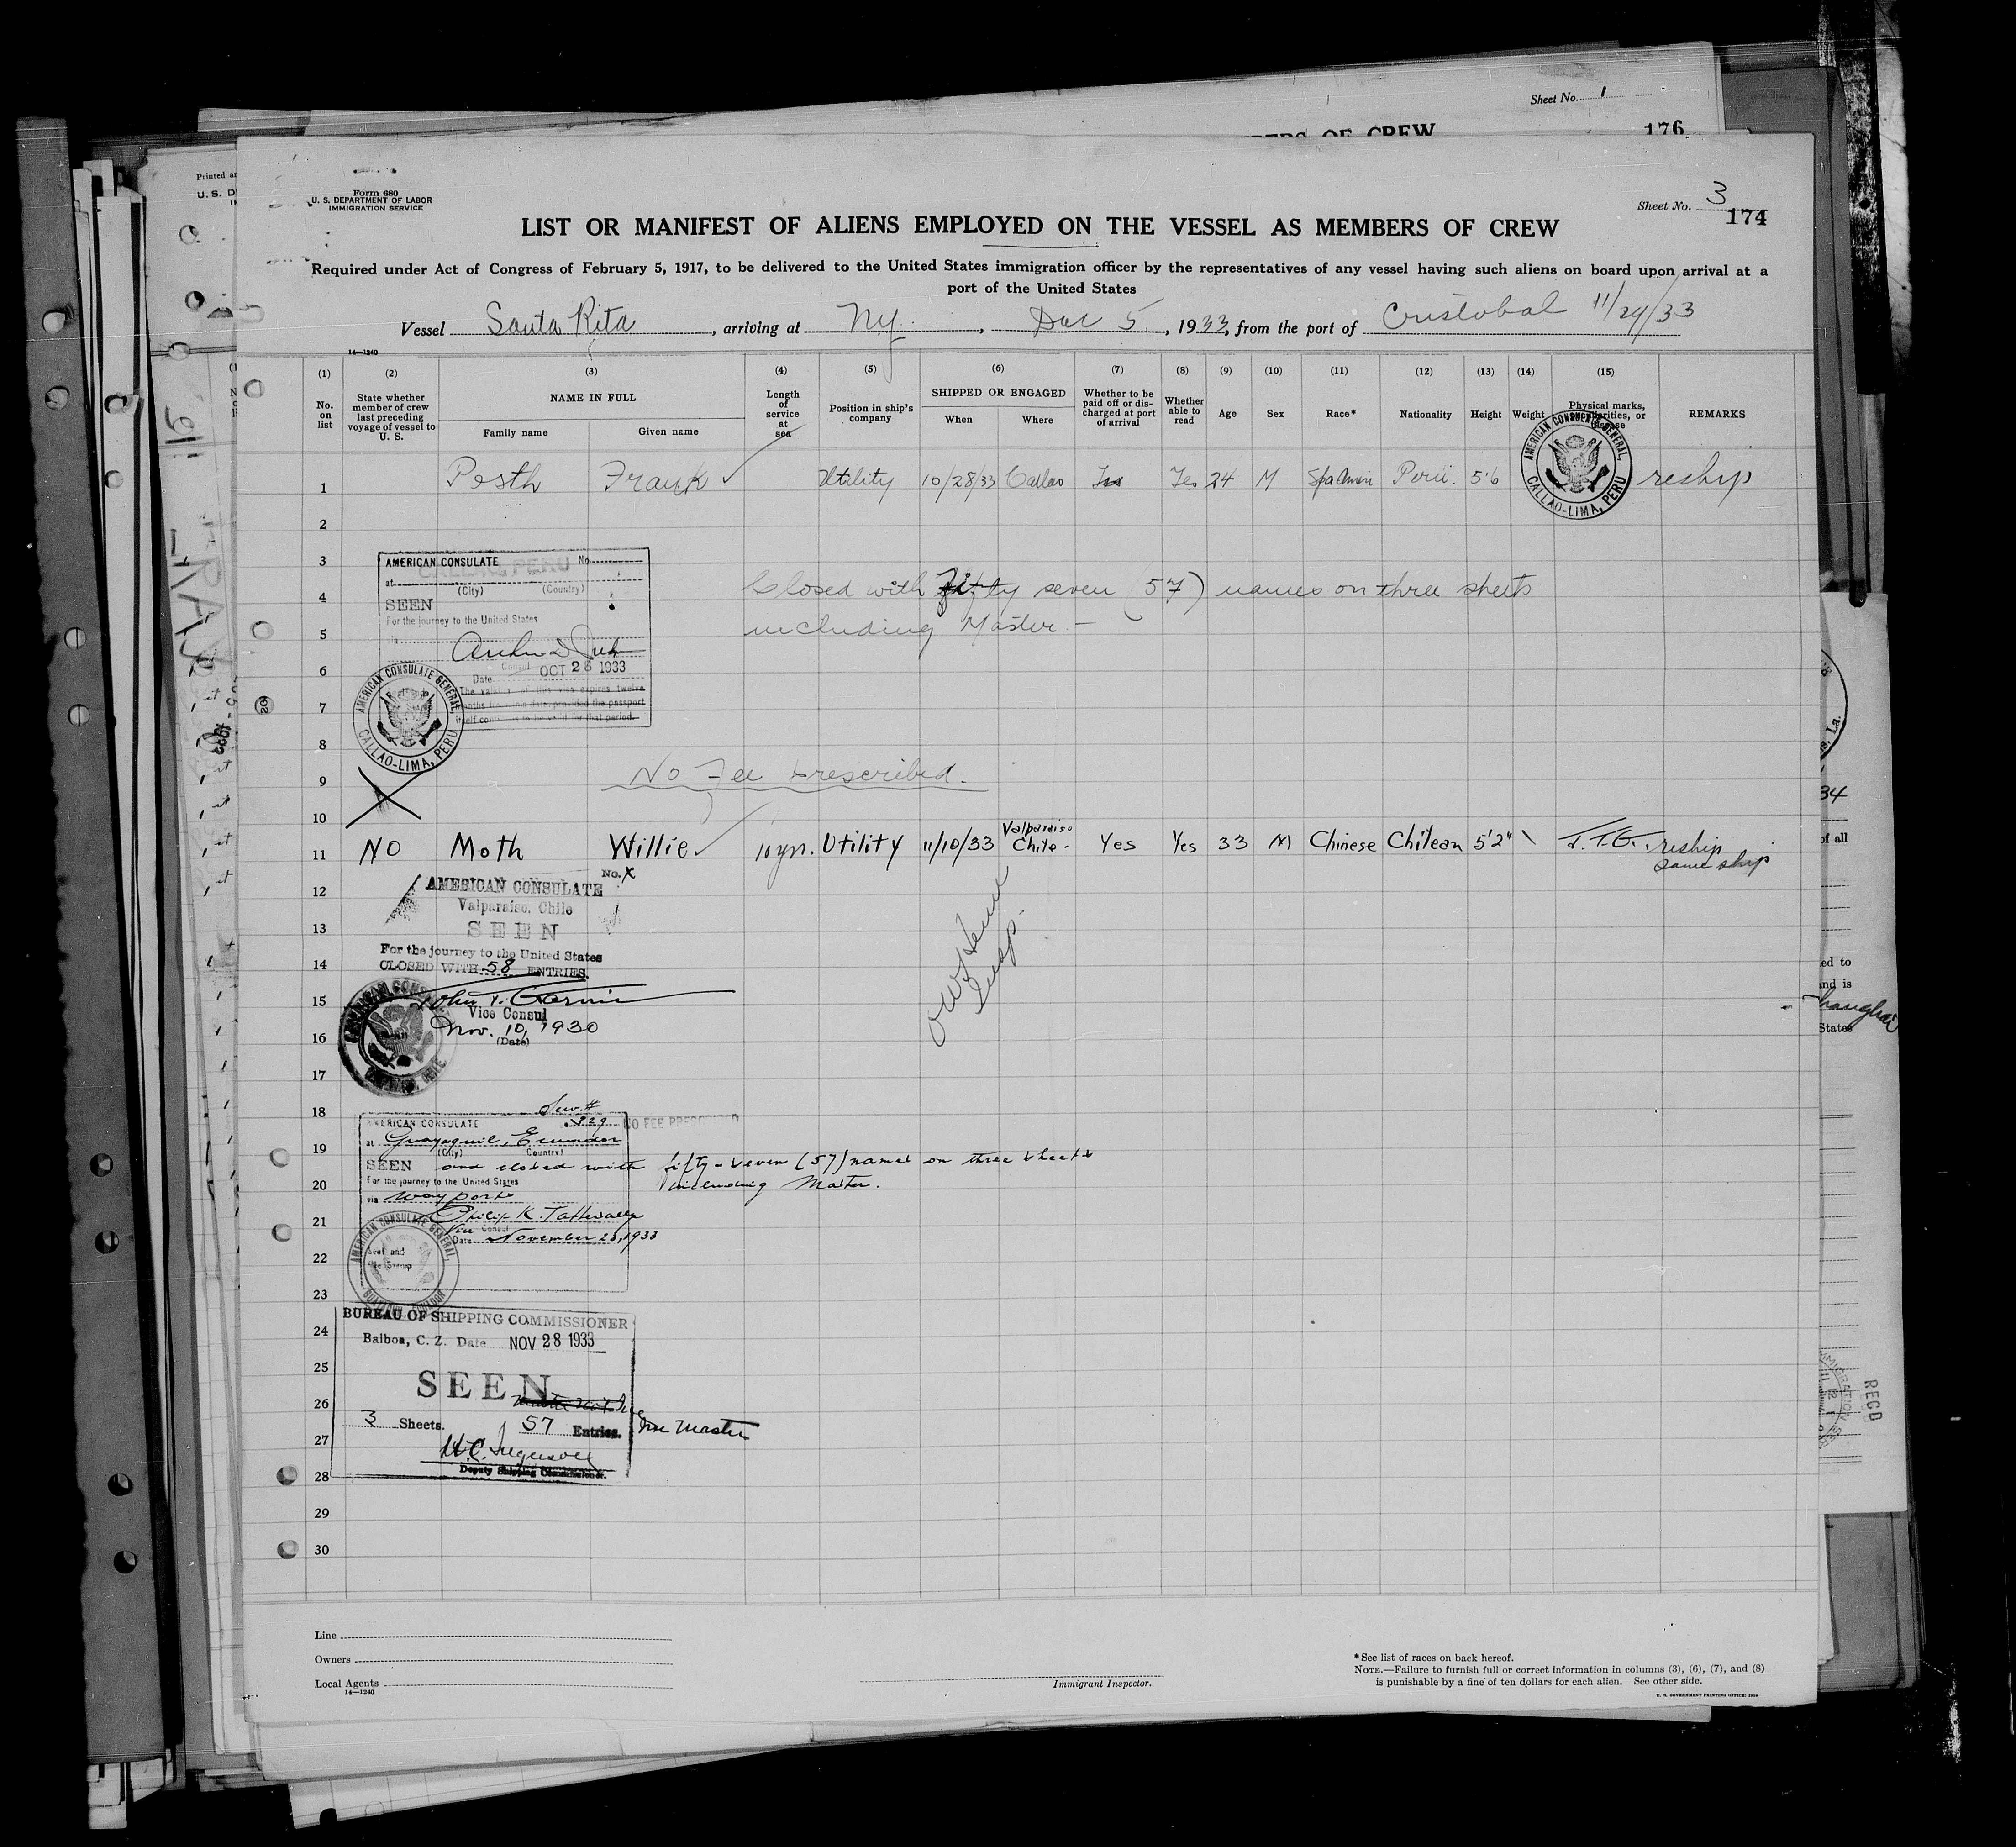 Sheet No. 1
BERS OF CREW
176
Printed
U. S. D
Form 680
U. S. DEPARTMENT OF LABOR
IMMIGRATION SERVICE
Sheet No. 3
174
LIST OR MANIFEST OF ALIENS EMPLOYED ON THE VESSEL AS MEMBERS OF CREW
Required under Act of Congress of February 5, 1917, to be delivered to the United States immigration officer by the representatives of any vessel having such aliens on board upon arrival at a
port of the United States
Vessel Santa Rita, arriving at NY., Dec 5, 1933, from the port of Cristobal 11/29/33
14—1240
(1) No. on list
(2) State whether member of crew last preceding voyage of vessel to U. S.
(3) NAME IN FULL
Family name Given name
(4) Length of service at sea
(5) Position in ship's company
(6) SHIPPED OR ENGAGED
When Where
(7) Whether to be paid off or discharged at port of arrival
(8) Whether able to read
(9) Age
(10) Sex
(11) Race*
(12) Nationality
(13) Height
(14) Weight
(15) Physical marks, peculiarities, or disease
REMARKS
1 Posth Frank Utility 10/28/33 Callao Yes 24 M Spa Amin Perú. 5'6 reship
AMERICAN CONSULATE GENERAL,
CALLAO-LIMA, PERU
2
3
AMERICAN CONSULATE No.
CALLAO, PERU
at
(City) (Country)
SEEN
For the journey to the United States
via
Consul
Date OCT 28 1933
The validity of this visa expires twelve
months from this date, provided the passport
itself continues to be valid for that period.
AMERICAN CONSULATE GENERAL,
CALLAO-LIMA, PERU
4 Closed with fifty seven (57) names on three sheets
5 including Master.—
6
7
8
9 No Fee prescribed.
10
11 NO Moth Willie 10 yrs. Utility 11/10/33 Valparaiso Chile. Yes Yes 33 M Chinese Chilean 5'2" T.T.G. reship
same ship
No. X
12
AMERICAN CONSULATE
Valparaiso, Chile
13
SEEN
For the journey to the United States
14
CLOSED WITH 58 ENTRIES.
15
Vice Consul
16
Nov. 10, 1930
(Date)
Insp.
17
18
Serv. #
829
AMERICAN CONSULATE
NO FEE PRESCRIBED
at Guayaquil, Ecuador
(City) Country)
19
SEEN and closed with fifty-seven (57) names on three sheets
For the journey to the United States
20
including Master.
via way ports
21
Philip K. Tattersall
Vice Consul
Date November 23, 1933
AMERICAN CONSULATE GENERAL,
GUAYAQUIL, ECUADOR
22
Seal and
Fee Stamp
23
BUREAU OF SHIPPING COMMISSIONER
24
Balboa, C. Z. Date NOV 28 1933
25
SEEN
26
3 Sheets. 57 Entries. Inc Master
27
Deputy Shipping Commissioner.
28
29
30
Line
Owners
Local Agents
14—1240
Immigrant Inspector.
*See list of races on back hereof.
NOTE.—Failure to furnish full or correct information in columns (3), (6), (7), and (8)
is punishable by a fine of ten dollars for each alien. See other side.
U. S. GOVERNMENT PRINTING OFFICE: 1929
34
of all
ed to
and is
hanghai
States
RECD